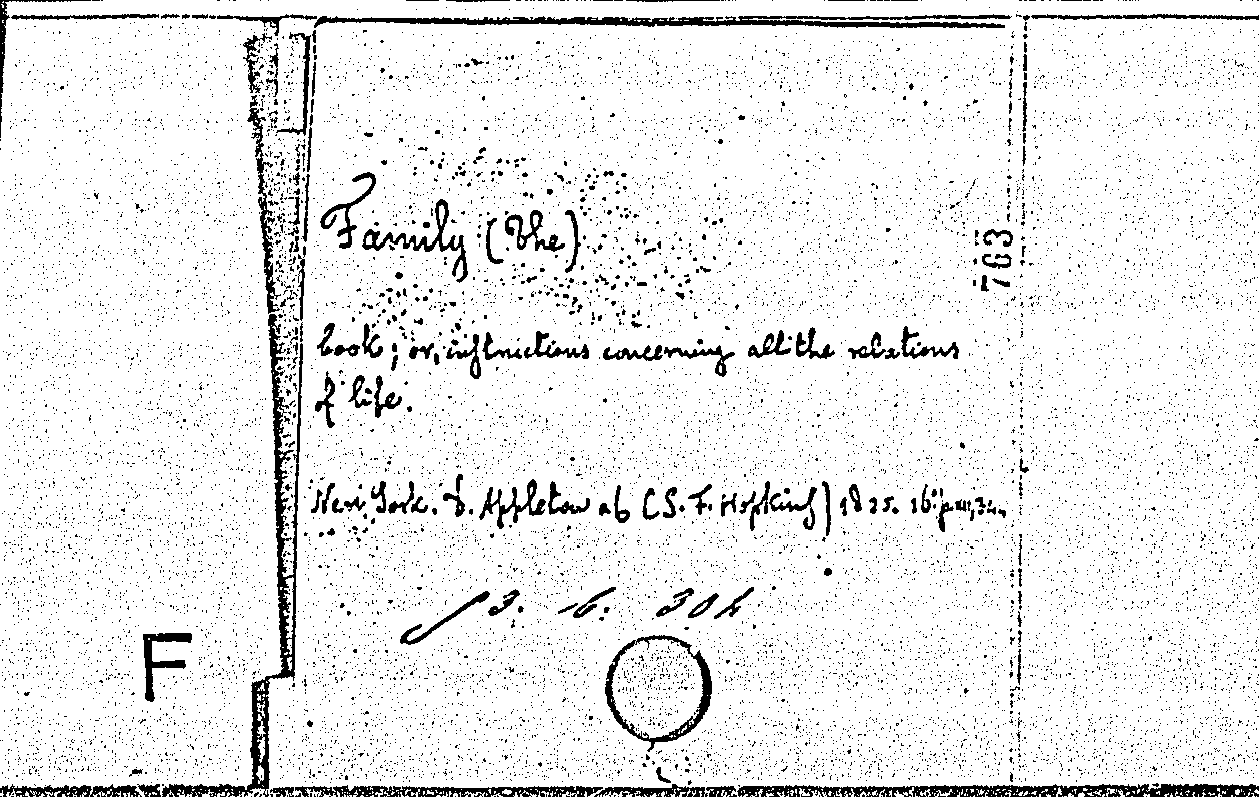 Family (The)
763
book; or, instructions concerning all the relations
of life.
New York. D. Appleton ab (S. F. Hopkins) 1835. 16º
3. 6. 30
F